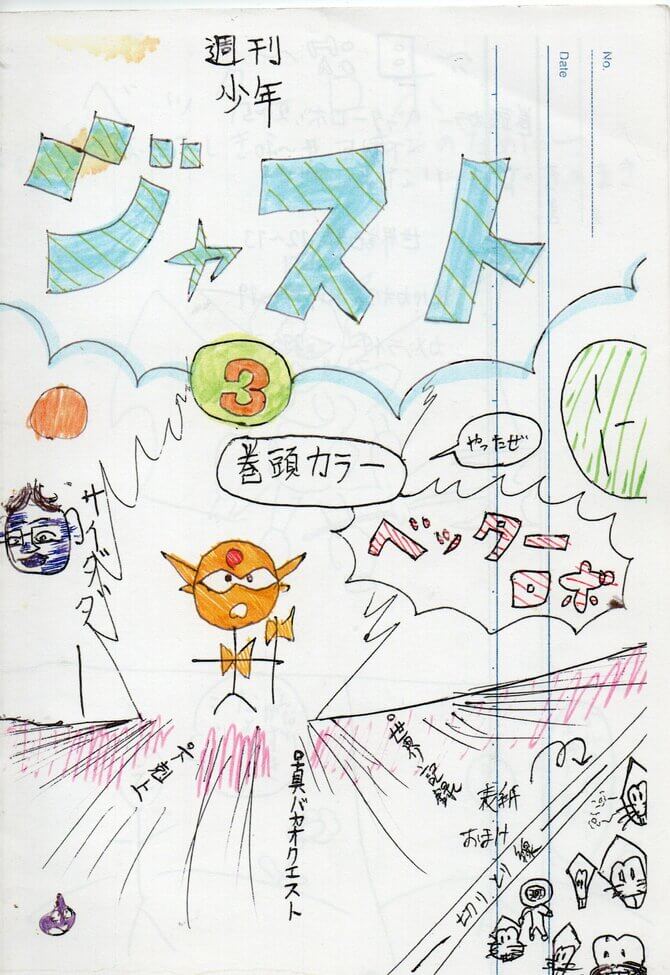 No.
Date
週刊
少年
ジャスト
3
巻頭カラー
やったぜ
ベッター
ロボ
サイダダ
真バカオクエスト
世界記録
表紙
おまけ
切りとり線